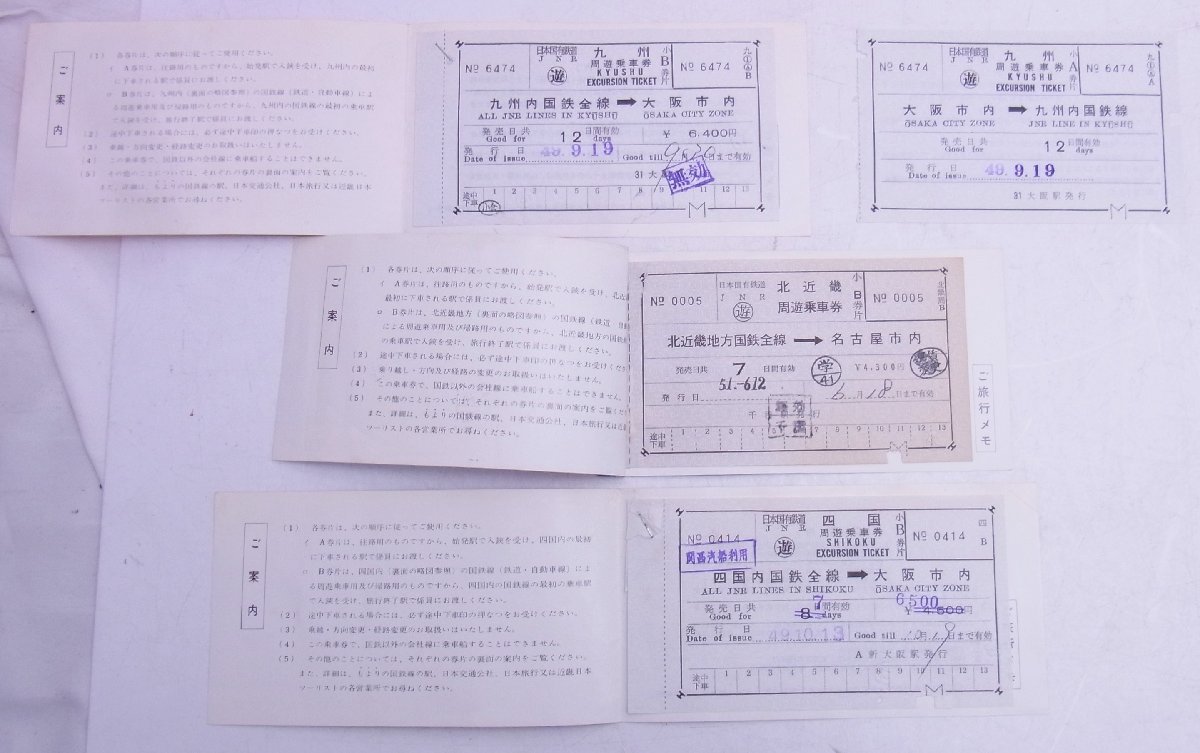 ご案内
(1) 各券片は、次の順序に従ってご使用ください。
イ A券片は、往路用のものですから、始発駅で入鋏を受け、九州内の最初
に下車される駅で係員にお渡しください。
ロ B券片は、九州内(裏面の略図参照)の国鉄線(鉄道・自動車線)によ
る周遊乗車用及び帰路用のものですから、九州内の国鉄線の最初の乗車駅
で入鋏を受け、旅行終了駅で係員にお渡しください。
(2) 途中下車される場合には、必ず途中下車印の押なつをお受けください。
(3) 乗継・方向変更・経路変更のお取扱いはいたしません。
(4) この乗車券で、国鉄以外の会社線に乗車船することはできません。
(5) その他のことについては、それぞれの券片の裏面の案内をご覧ください。
また、詳細は、もよりの国鉄の駅、日本交通公社、日本旅行又は近畿日本
ツーリストの各営業所でお尋ねください。
№ 6474
日本国有鉄道
J N R
遊
九州
周遊乗車券
KYUSHU
EXCURSION TICKET
小B券片
№ 6474
九州内国鉄全線➡大阪市内
ALL JNR LINES IN KYŪSHŪ ŌSAKA CITY ZONE
発売日共 12 日間有効 ¥ 6,400円
Good for days
発行日 49.9.19 Good till 9月30日まで有効
Date of issue
31 大
無効
途中下車 1 2 3 4 5 6 7 8 9 10 11 12 13
小倉
№ 6474
日本国有鉄道
J N R
遊
九州
周遊乗車券
KYUSHU
EXCURSION TICKET
小A券片
№ 6474
大阪市内➡九州内国鉄線
ŌSAKA CITY ZONE JNR LINE IN KYŪSHŪ
発売日共 12 日間有効
Good for days
発行日 49.9.19
Date of issue
31 大阪駅発行
ご案内
(1) 各券片は、次の順序に従ってご使用ください。
イ A券片は、往路用のものですから、始発駅で入鋏を受け、北近
最初に下車される駅で係員にお渡しください。
ロ B券片は、北近畿地方(裏面の略図参照)の国鉄線(鉄道・自動
による周遊乗車用及び帰路用のものですから、北近畿地方の国鉄
の乗車駅で入鋏を受け、旅行終了駅で係員にお渡しください。
(2) 途中下車される場合には、必ず途中下車印の押なつをお受けくださ
(3) 乗り越し・方向及び経路の変更のお取扱いはいたしません。
(4) この乗車券で、国鉄以外の会社線に乗車船することはできません。
(5) その他のことについては、それぞれの券片の裏面の案内をご覧くだ
また、詳細は、もよりの国鉄線の駅、日本交通公社、日本旅行又は近
ツーリストの各営業所でお尋ねください。
№ 0005
日本国有鉄道
J N R
遊
北近畿
周遊乗車券
小B券片
№ 0005
北近畿地方国鉄全線➡名古屋市内
発売日共 7 日間有効 学 41 ¥4,300円
51.-6.12
発行日 6月18日まで有効
途中下車 1 2 3 4 5 6 7 8 9 10 11 12 13
ご旅行メモ
ご案内
(1) 各券片は、次の順序に従ってご使用ください。
イ A券片は、往路用のものですから、始発駅で入鋏を受け、四国内の最初
に下車される駅で係員にお渡しください。
ロ B券片は、四国内(裏面の略図参照)の国鉄線(鉄道・自動車線)によ
る周遊乗車用及び帰路用のものですから、四国内の国鉄線の最初の乗車駅
で入鋏を受け、旅行終了駅で係員にお渡しください。
(2) 途中下車される場合には、必ず途中下車印の押なつをお受けください。
(3) 乗継・方向変更・経路変更のお取扱いはいたしません。
(4) この乗車券で、国鉄以外の会社線に乗車船することはできません。
(5) その他のことについては、それぞれの券片の裏面の案内をご覧ください。
また、詳細は、もよりの国鉄線の駅、日本交通公社、日本旅行又は近畿日本
ツーリストの各営業所でお尋ねください。
№ 0414
関西汽船利用
日本国有鉄道
J N R
遊
四国
周遊乗車券
SHIKOKU
EXCURSION TICKET
小B券片
№ 0414
四B
四国内国鉄全線➡大阪市内
ALL JNR LINES IN SHIKOKU ŌSAKA CITY ZONE
7 6,500
発売日共 8 日間有効 ¥ 4,800円
Good for days
発行日 49.10.13 Good till 10月19日まで有効
Date of issue
A 新大阪駅発行
途中下車 1 2 3 4 5 6 7 8 9 10 11 12 13